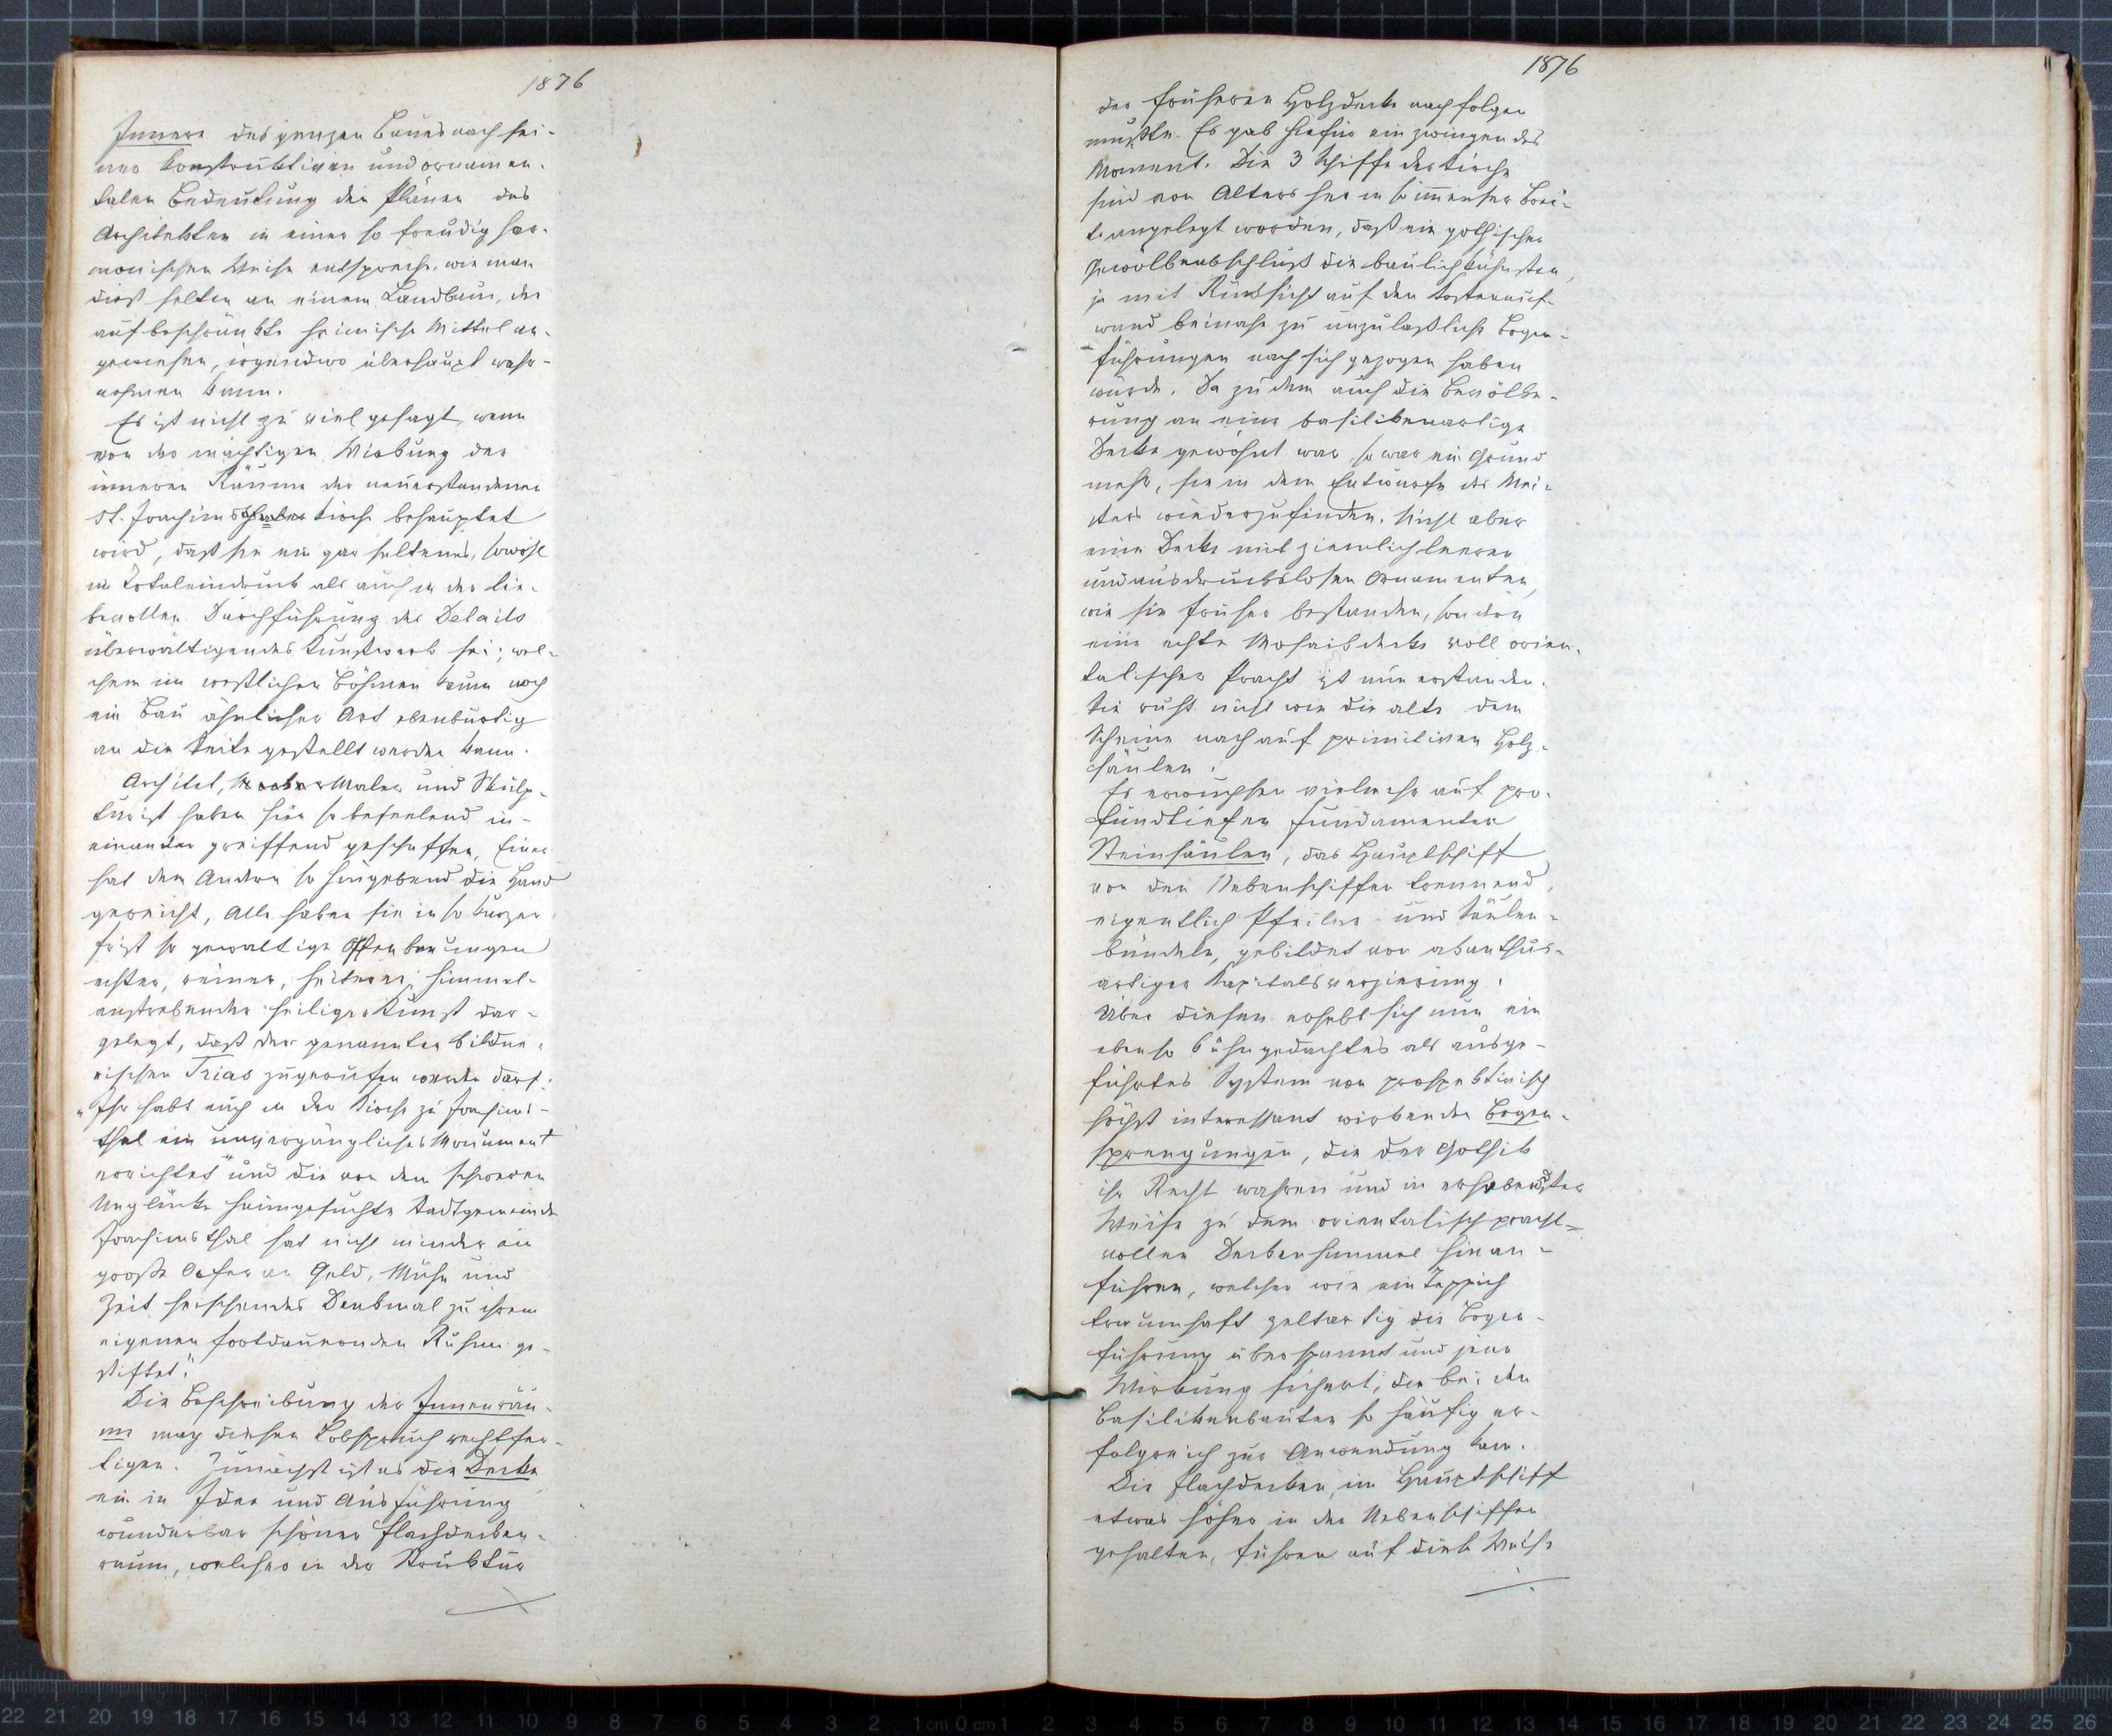 1876
Innere des ganzen Baues nach sei-
ner konstruktiven und ornamen-
talen Bedeutung den Plänen des
Architekten in einer so freudig har-
monischen Weise entspreche, wie man
dieß selten an einem Landbau, der
auf beschränkte heimische Mittel an-
gewiesen, irgendwo überhaupt wahr-
nehmen kann.
Es ist nicht zu viel gesagt, wenn
von der mächtigen Wirkung der
inneren Räume der neuerstandenen
St. Joachimsthaler Kirche behauptet
wird, daß sie ein gar seltenes, sowohl
im Totaleindruck als auch in der lie-
bevollen Durchführung des Details
überwältigendes Kunstwerk sei; wel-
chem im westlichen Böhmen kaum noch
ein Bau ähnlicher Art ebenbürtig
an die Seite gestellt werden kann.
Architekt, Maler und Skulp-
turist haben hier so beseelend in-
einander greiffend geschaffen, Einer
hat dem Andern so hingebend die Hand
gereicht, Alle haben sie in so kurzer
Frist so gewaltige Offenbarungen
echter, reiner, heiterer, himmel-
anstrebender heiliger Kunst dar-
gelegt, daß der genannten bildne-
rischen Trias zugerufen werden darf:
"Ihr habt euch in der Kirche zu Joachims-
thal ein unvergängliches Monument
errichtet" und die von dem schweren
Unglücke heimgesuchte Stadtgemeinde
Joachimsthal hat nicht minder ein
große Opfer an Geld, Mühe und
Zeit heischendes Denkmal zu ihrem
eigenen fortdauernden Ruhme ge-
stiftet."
Die Beschreibung der Innenräu-
me mag diesen Lobspruch rechtfer-
tigen. Zunächst ist es die Decke
ein in Idee und Ausführung
wunderbar schöner Flachdecken-
raum, welcher in der Struktur
1876
der früheren Holzdecke nachfolgen
mußte. Es gab hiefür ein zwingendes
Moment. Die 3 Schiffe der Kirche
sind von Alters her in so immenser Brei-
te angelegt worden, daß ein gothischer
Gewölbeabschluß die baulich kühnsten,
ja mit Rücksicht auf den Kostenauf-
wand beinahe zu unzulaßliche Bogen-
führungen nach sich gezogen haben
würde. Da zu dem auch die Bevölke-
rung an eine basilikenartige
Decke gewöhnt war, so war ein Grund
mehr, sie in dem Entwurfe des Mei-
sters wiederzufinden. Nicht aber
eine Decke mit ziemlich leeren
und ausdruckslosen Ornamenten,
wie sie früher bestanden, sondern
eine echte Mosaikdecke voll orien-
talischer Pracht ist nun erstanden.
Sie ruht nicht wie die alte dem
Scheine nach auf primitiven Holz-
säulen.
Es erwuchsen vielmehr auf pro-
fundtiefen Fundamenten
Steinsäulen, das Hauptschiff
von den Nebenschiffen trennend,
eigentlich Pfeiler- und Säulen-
bündeln, gebildet von akanthus-
artiger Kapitalsverzierung.
Über diesen erhebt sich nun ein
eben so kühn gedachtes als ausge-
führtes System von prospektivisch
höchst interessant wirkenden Bogen-
sprengungen, die der Gothik
ihr Recht wahren und in erhabendster
Weise zu dem orientalisch pracht-
vollen Deckenhimmel hinan-
führen, welcher wie ein Teppich
traumhaft zeltartig die Bogen-
führung überspannt und jene
Wirkung sichert, die bei den
Basilikenbauten so häufig er-
folgreich zur Anwendung kam.
Die Flachdecken, im Hauptschiff
etwas höher in den Nebenschiffen
gehalten, führen auf diese Weise